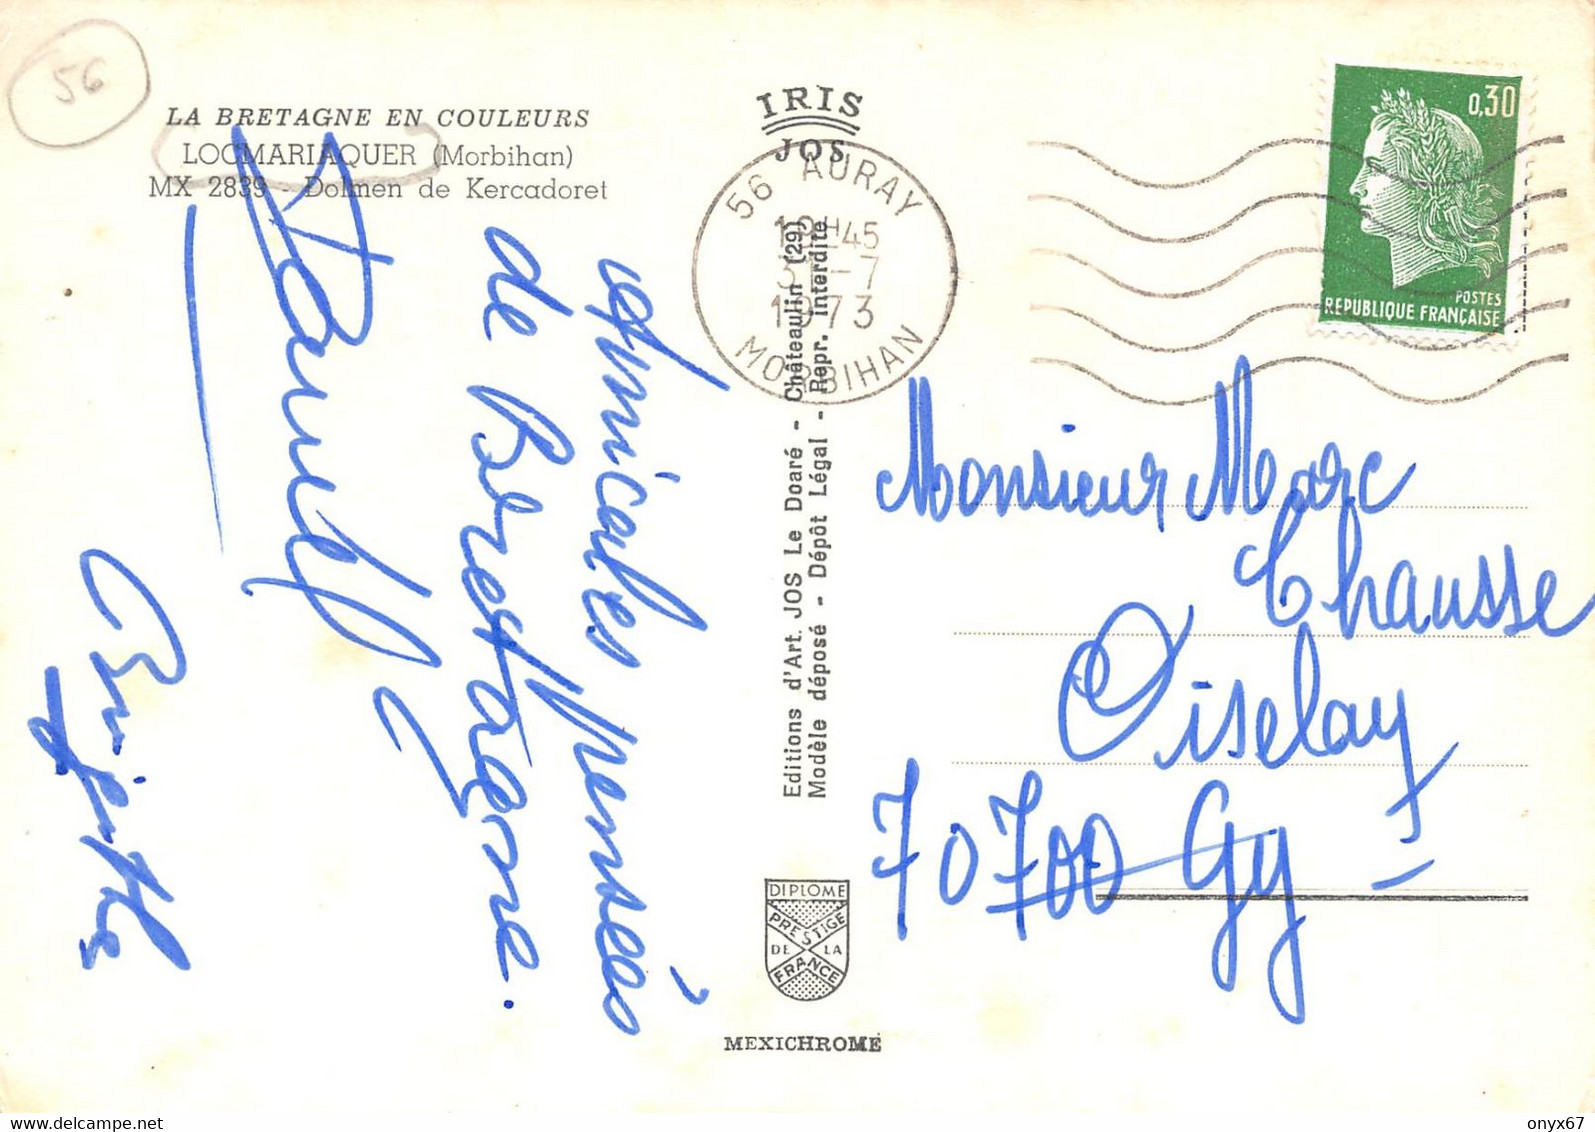 56
LA BRETAGNE EN COULEURS
LOCMARIAQUER (Morbihan)
MX 2839 - Dolmen de Kercadoret
IRIS
JOS
56 AURAY
31-7
1973
MORBIHAN
0,30
POSTES
REPUBLIQUE FRANÇAISE
Amicales pensées
de Bretagne.
Daniel
Brigitte
Editions d'Art. JOS Le Doaré - Châteaulin (29)
Modèle déposé - Dépôt Légal - Repr. interdite
Monsieur Marc
Chausse
Oiselay
70700 Gy
DIPLOME
PRESTIGE
DE LA
FRANCE
MEXICHROME
delcampe.net
onyx67